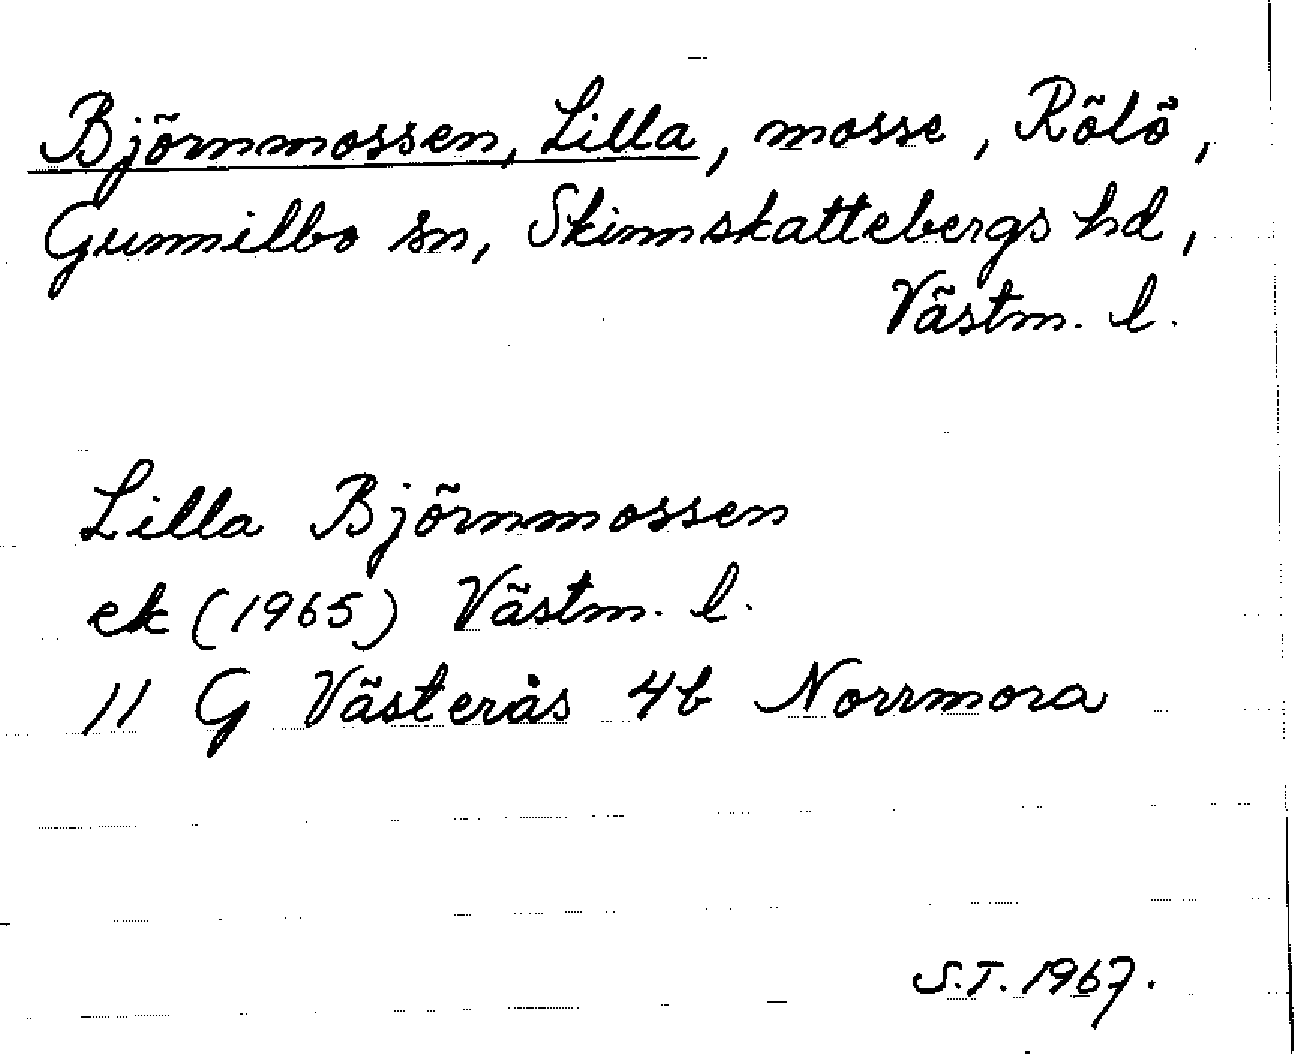 Björnmossen, Lilla, mosse, Rölö,
Gunnilbo sn, Skinnskattebergs hd,
Västm. l.
Lilla Björnmossen
ek (1965) Västm. l.
11 G Västerås 4b Norrmora
S.T. 1967.